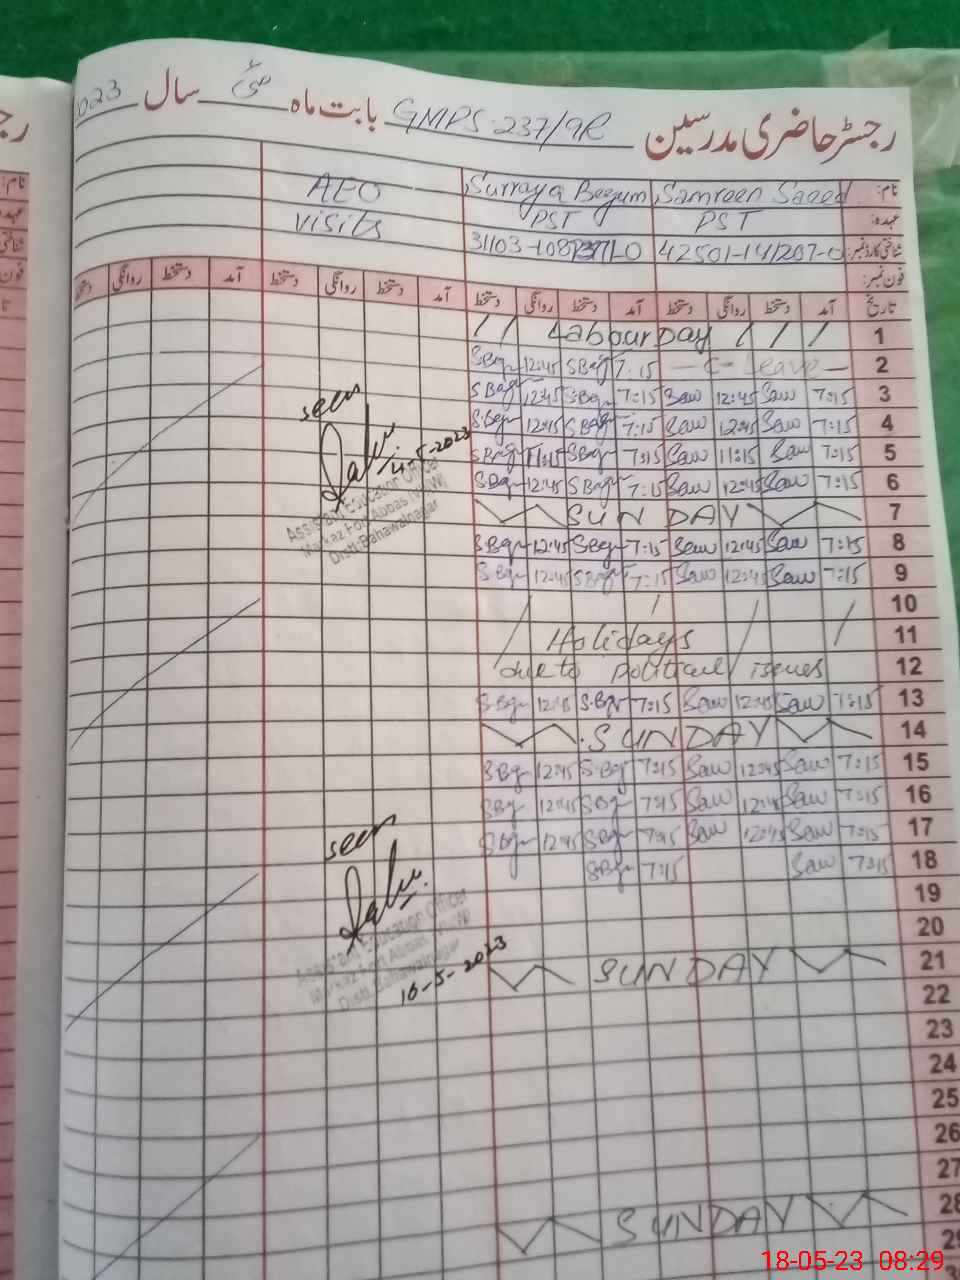 رجسٹر حاضری مدرسین GMPS 237/9R بابت ماہ مئی سال 023
نام: Samreen Saeed Surraya Begum AEO
عہدہ: PST PST visits
شناختی کارڈ نمبر:
فون نمبر:
تاریخ آمد دستخط روانگی دستخط آمد دستخط روانگی دستخط آمد دستخط روانگی دستخط آمد دستخط روانگی
/ / Labour Day / / / 1
SBgr 12:45 SBgr 7:15 — C-Leave — 2
SBgr 12:45 SBgr 7:15 Saw 12:45 Saw 7:15 3
SBgr 12:45 SBgr 7:15 Saw 12:45 Saw 7:15 4
SBgr 11:15 SBgr 7:15 Saw 11:15 Saw 7:15 5
SBgr 12:45 SBgr 7:15 Saw 12:45 Saw 7:15 6
SUNDAY 7
SBgr 12:45 SBgr 7:15 Saw 12:45 Saw 7:15 8
SBgr 12:45 SBgr 7:15 Saw 12:45 Saw 7:15 9
10
Holidays 11
due to political issues 12
S.Bgr 12:45 S.Bgr 7:15 Saw 12:45 Saw 7:15 13
SUNDAY 14
S.Bgr 12:45 S.Bgr 7:15 Saw 12:45 Saw 7:15 15
SBgr 12:45 SBgr 7:15 Saw 12:45 Saw 7:15 16
SBgr 12:45 SBgr 7:15 Saw 12:45 Saw 7:15 17
SBgr 7:15 Saw 7:15 18
19
20
SUNDAY 21
22
23
24
25
26
27
SUNDAY 28
29
seen
-5-2023
Assistant Education Officer
Markaz Fort Abbas (W)
Distt: Bahawalnagar
seen
Assistant Education Officer
Markaz Fort Abbas (W)
Distt: Bahawalnagar
16-5-2023
18-05-23 08:29